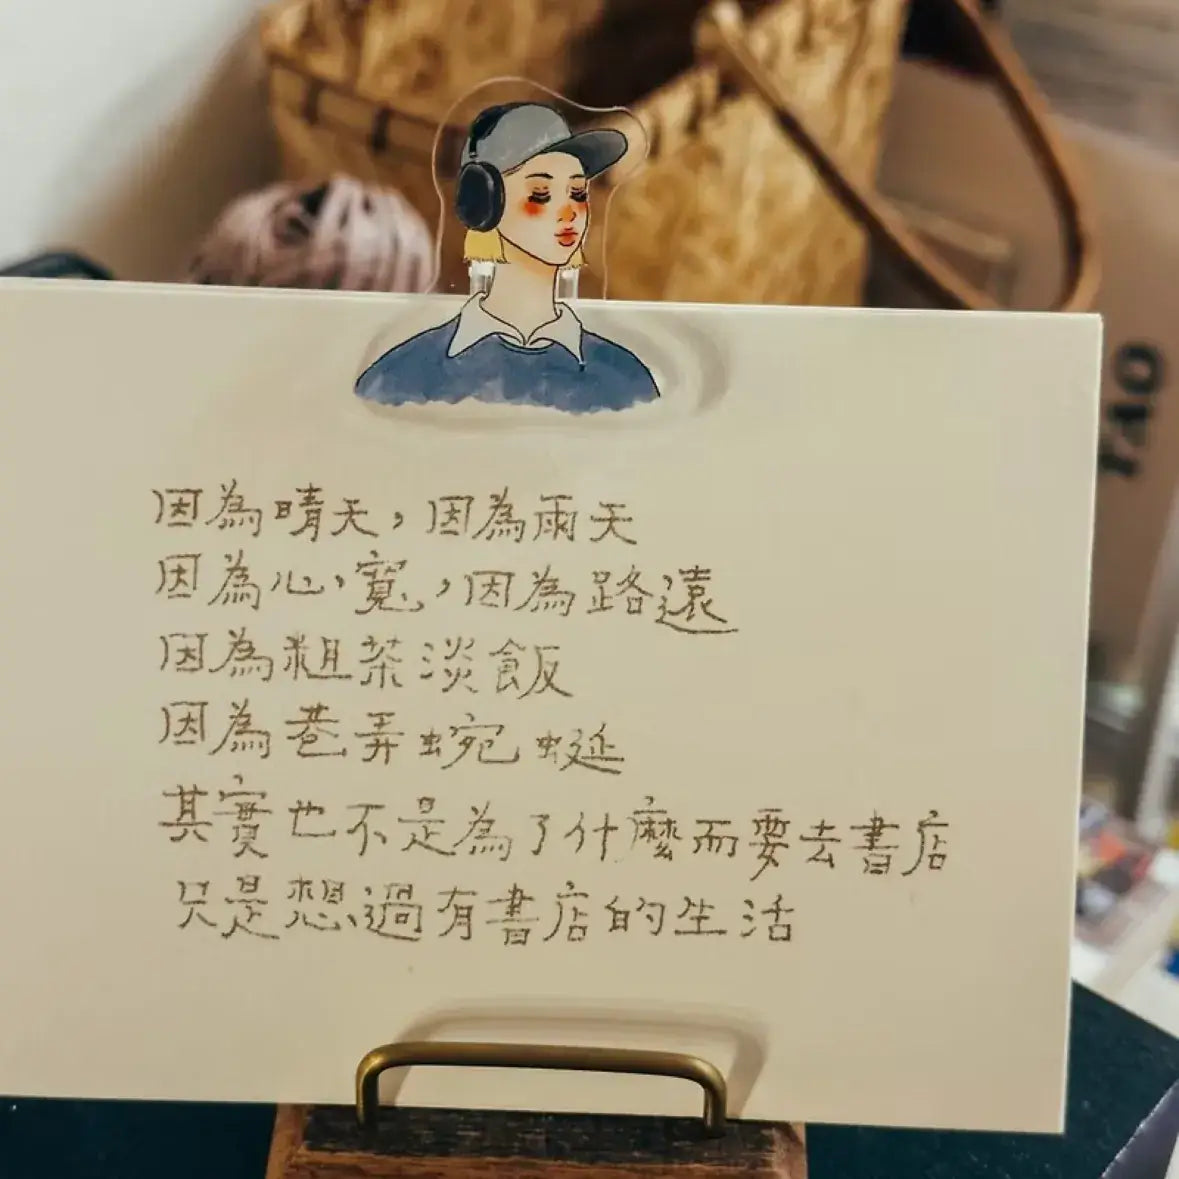 因為晴天，因為雨天
因為心寬，因為路遠
因為粗茶淡飯
因為巷弄蜿蜒
其實也不是為了什麼而要去書店
只是想過有書店的生活
YAO